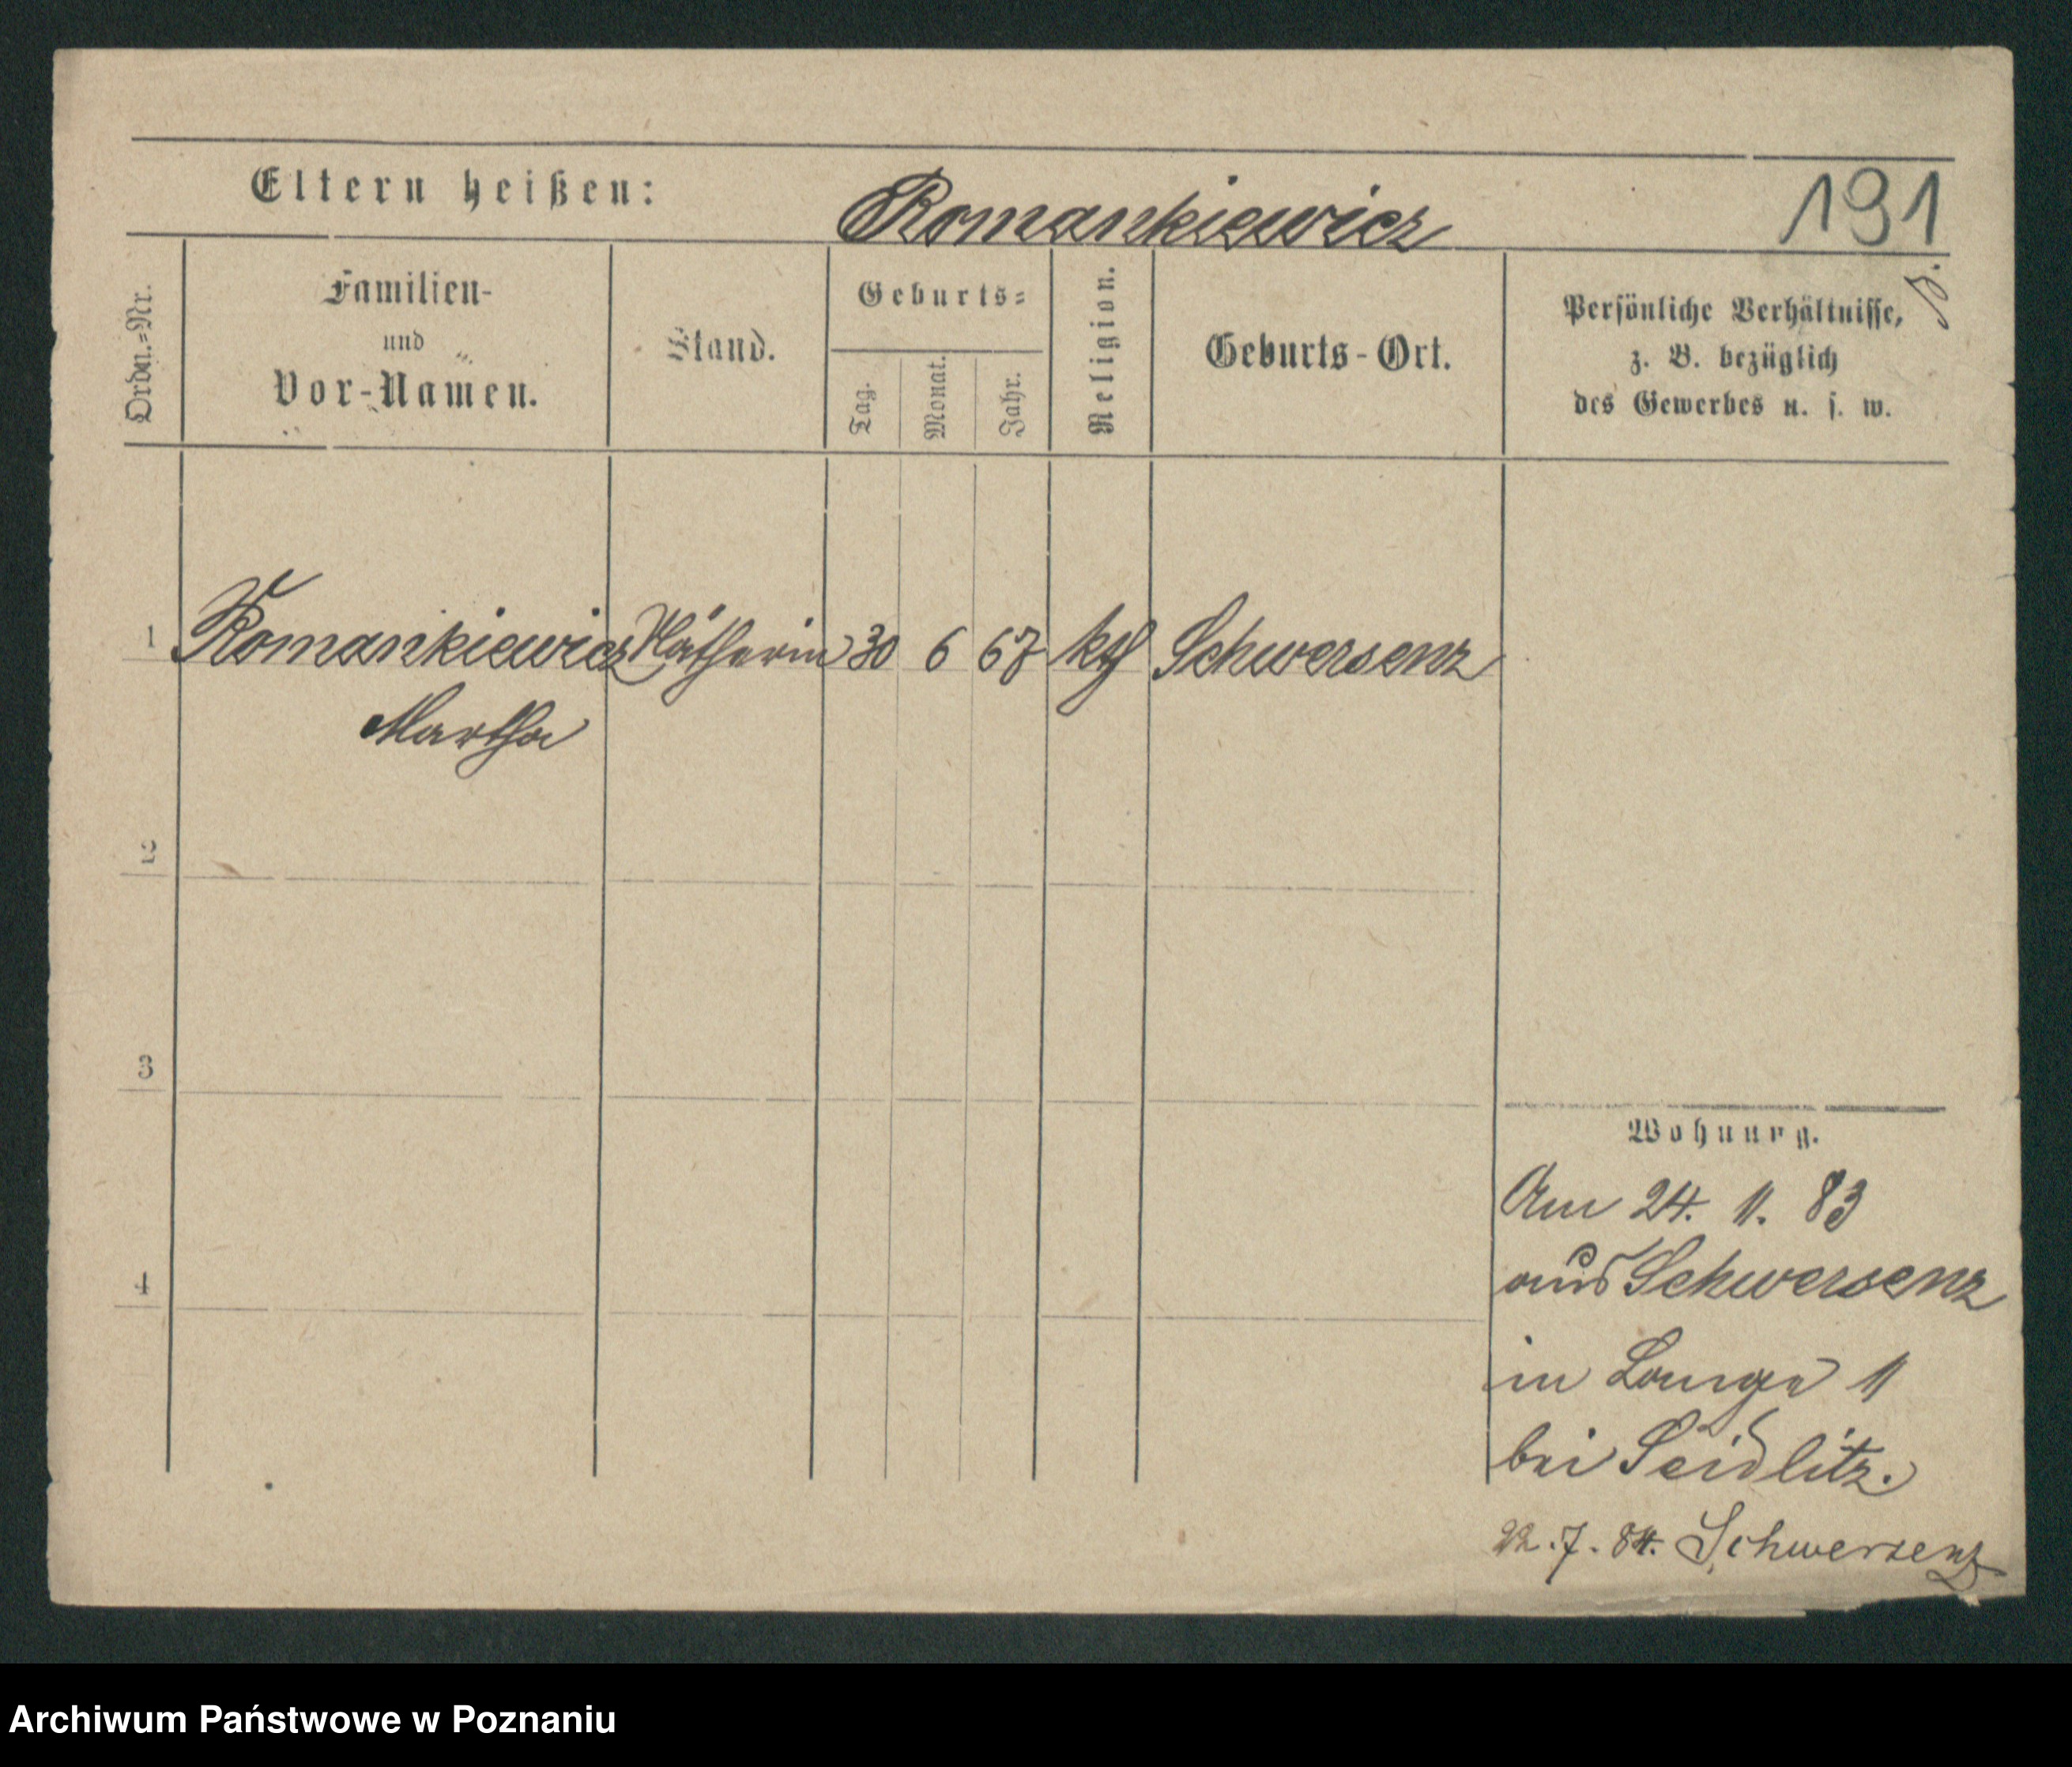 Eltern heißen:
Romankiewicz
191
Ordn.-Nr.
Familien-
und
Vor-Namen.
Stand.
Geburts-
Tag.
Monat.
Jahr.
Religion.
Geburts-Ort.
Persönliche Verhältnisse,
z. B. bezüglich
des Gewerbes u. s. w.
1 Romankiewicz Nätherin 30 6 67 kth Schwersenz
Martha
2
3
4
Wohnung.
Am 24. 11. 83
aus Schwersenz
in Lange 11
bei Seidlitz.
22.7.84. Schwersenz
Archiwum Państwowe w Poznaniu